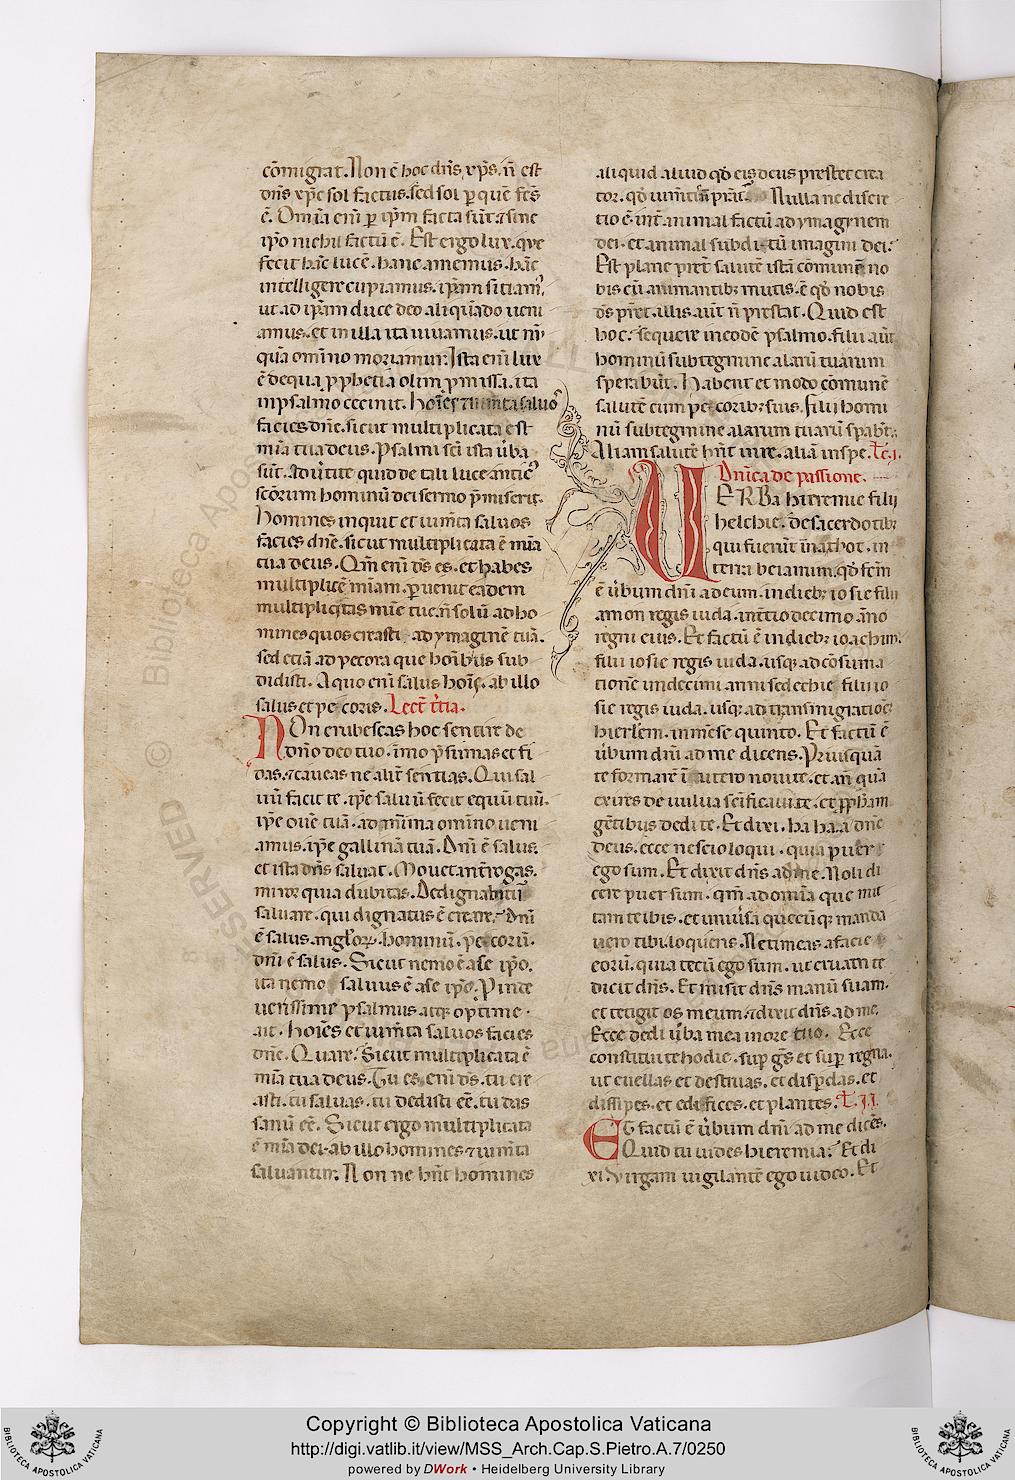 cōmigrat. Non ē hoc dn̄s xp̄s. n̄ est
dn̄s xp̄c sol factus. sed sol p̱ quē fc̄s
ē. Om̄ia eni̅ p̱ ip̄m facta sūt. ⁊ sine
ip̄o nichil factū ē. Est ergo lux. que
fecit hāc lucē. hanc amemus. hāc
intelligere cupiamus. ip̄am sitiam᾽,
ut ad ip̄am duce deo aliquādo ueni
amus. et in illa ita uiuamus. ut nū
quā omnino moriamur. Ista eni̅ lux
ē de qua p̱phetia olim p̱missa. ita
in psalmo cecinit. hoīes ⁊ iumta saluos
facies dn̄e. sicut multiplicata est
mīa tua deus. Psalmi sc̄i ista ūba
sūt. Aduertite quid de tali luce antiq᾽
sc̄orum hominū dei sermo p̄miserit.
homines inquit et iumta saluos
facies dn̄e. sicut multiplicata ē mīa
tua deus. Qm̄ eni̅ ds̄ es. et habes
multiplicē mīam. p̱uenit eadem
multiplicitas mīe tue. n̄ solū ad ho
mines quos creasti. ad ymaginē tuā.
sed etiā ad pecora que hoībus sub
didisti. A quo eni̅ salus hoīs. ab illo
salus et pecoris. Lect̄ t̄tia.
Non erubescas hoc sentire de
dn̄o deo tuo. immo p̄sumas et fi
das. ⁊ caueas ne alit̄ sentias. Qui sal
uū facit te. ip̄e saluū fecit equū tuū.
ip̄e ouē tuā. ad minima omīno ueni
amus. ip̄e gallinā tuā. Dn̄i ē salus.
et ista dn̄s saluat. Mouet. int̄rogas.
miror quia dubitas. Dedignabitur
saluare. qui dignatus ē creare. Dn̄i
ē salus. angl̄oꝝ. hominū. pecorū.
dn̄i ē salus. Sicut nemo ē a se ip̄o.
ita nemo saluus ē a se ip̄o. Pinde
uerissime psalmus atqꝫ optime.
ait. hoīes et iumta saluos facies
dn̄e. Quare. Sicut multiplicata ē
mīa tua deus. Tu es eni̅ ds̄. tu cre
asti. tu saluas. tu dedisti eē. tu das
sanū eē. Sicut ergo multiplicata
ē mīa dei. ab illo homines ⁊ iumta
saluantur. Non ne hn̄t homines
aliquid aliud qd̄ eis deus prestet crea
tor. qd̄ iumtis n̄ p̄stat. Nulla ne discre
tio ē. int̄ animal factū ad ymaginem
dei. et animal subditū imagini dei.
Est plane. p̄ter salutē istā cōmunē no
bis cū animantibꝫ mutis. ē qd̄ nobis
ds̄ p̄stet. illis aut̄ n̄ prestat. Quid est
hoc. sequere in eodē psalmo. filii aut̄
hominū sub tegmine alarū tuarum
sperabūt. habent et modo cōmunē
salutē cum pecoribꝫ suis. filii homi
nū sub tegmine alarum tuarū spabt̄.
Aliam salutē hn̄t in re. aliā in spe. Lc̄. I.
Dn̄ica de passione.
UERBa hieremie filii
helchie. de sacerdotibꝫ
qui fuerūt in anathot. in
terra beiamim. qd̄ fcm̄
ē ūbum dn̄i ad eum. in diebꝫ iosie filii
amon regis iuda. in t̄tio decimo āno
regni eius. Et factū ē in diebꝫ ioachim.
filii iosie regis iuda. usqꝫ ad cōsuma
tionē undecimi anni sedechie filii io
sie regis iuda. usqꝫ ad transmigrationē
hierl̄em. in mēse quinto. Et factū ē
ūbum dn̄i ad me dicens. Priusquā
te formarē in utero noui te. et an̄ quā
exires de uulua sc̄ificaui te. et p̱pham
gētibus dedi te. Et dixi. ha ha. a dn̄e
deus. ecce nescio loqui. quia puer
ego sum. Et dixit dn̄s ad me. Noli di
cere puer sum. qm̄ ad omīa que mit
tam te ibis. et uniūsa quecūqꝫ manda
uero tibi loqueris. Ne timeas a facie
eorū. quia tecū ego sum. ut eruam te
dicit dn̄s. Et misit dn̄s manū suam.
et tetigit os meum. ⁊ dixit dn̄s ad me.
Ecce dedi ūba mea in ore tuo. Ecce
constitui te hodie. sup̱ gēs et sup̱ regna.
ut euellas et destruas. et disp̱das. et
dissipes. et edifices. et plantes. Lc̄. II.
ET factū ē ūbum dn̄i ad me dicēs.
Quid tu uides hieremia. Et di
xi. Virgam uigilantē ego uideo. Et
Copyright © Biblioteca Apostolica Vaticana
http://digi.vatlib.it/view/MSS_Arch.Cap.S.Pietro.A.7/0250
powered by DWork • Heidelberg University Library
BIBLIOTECA APOSTOLICA VATICANA
BIBLIOTECA APOSTOLICA VATICANA